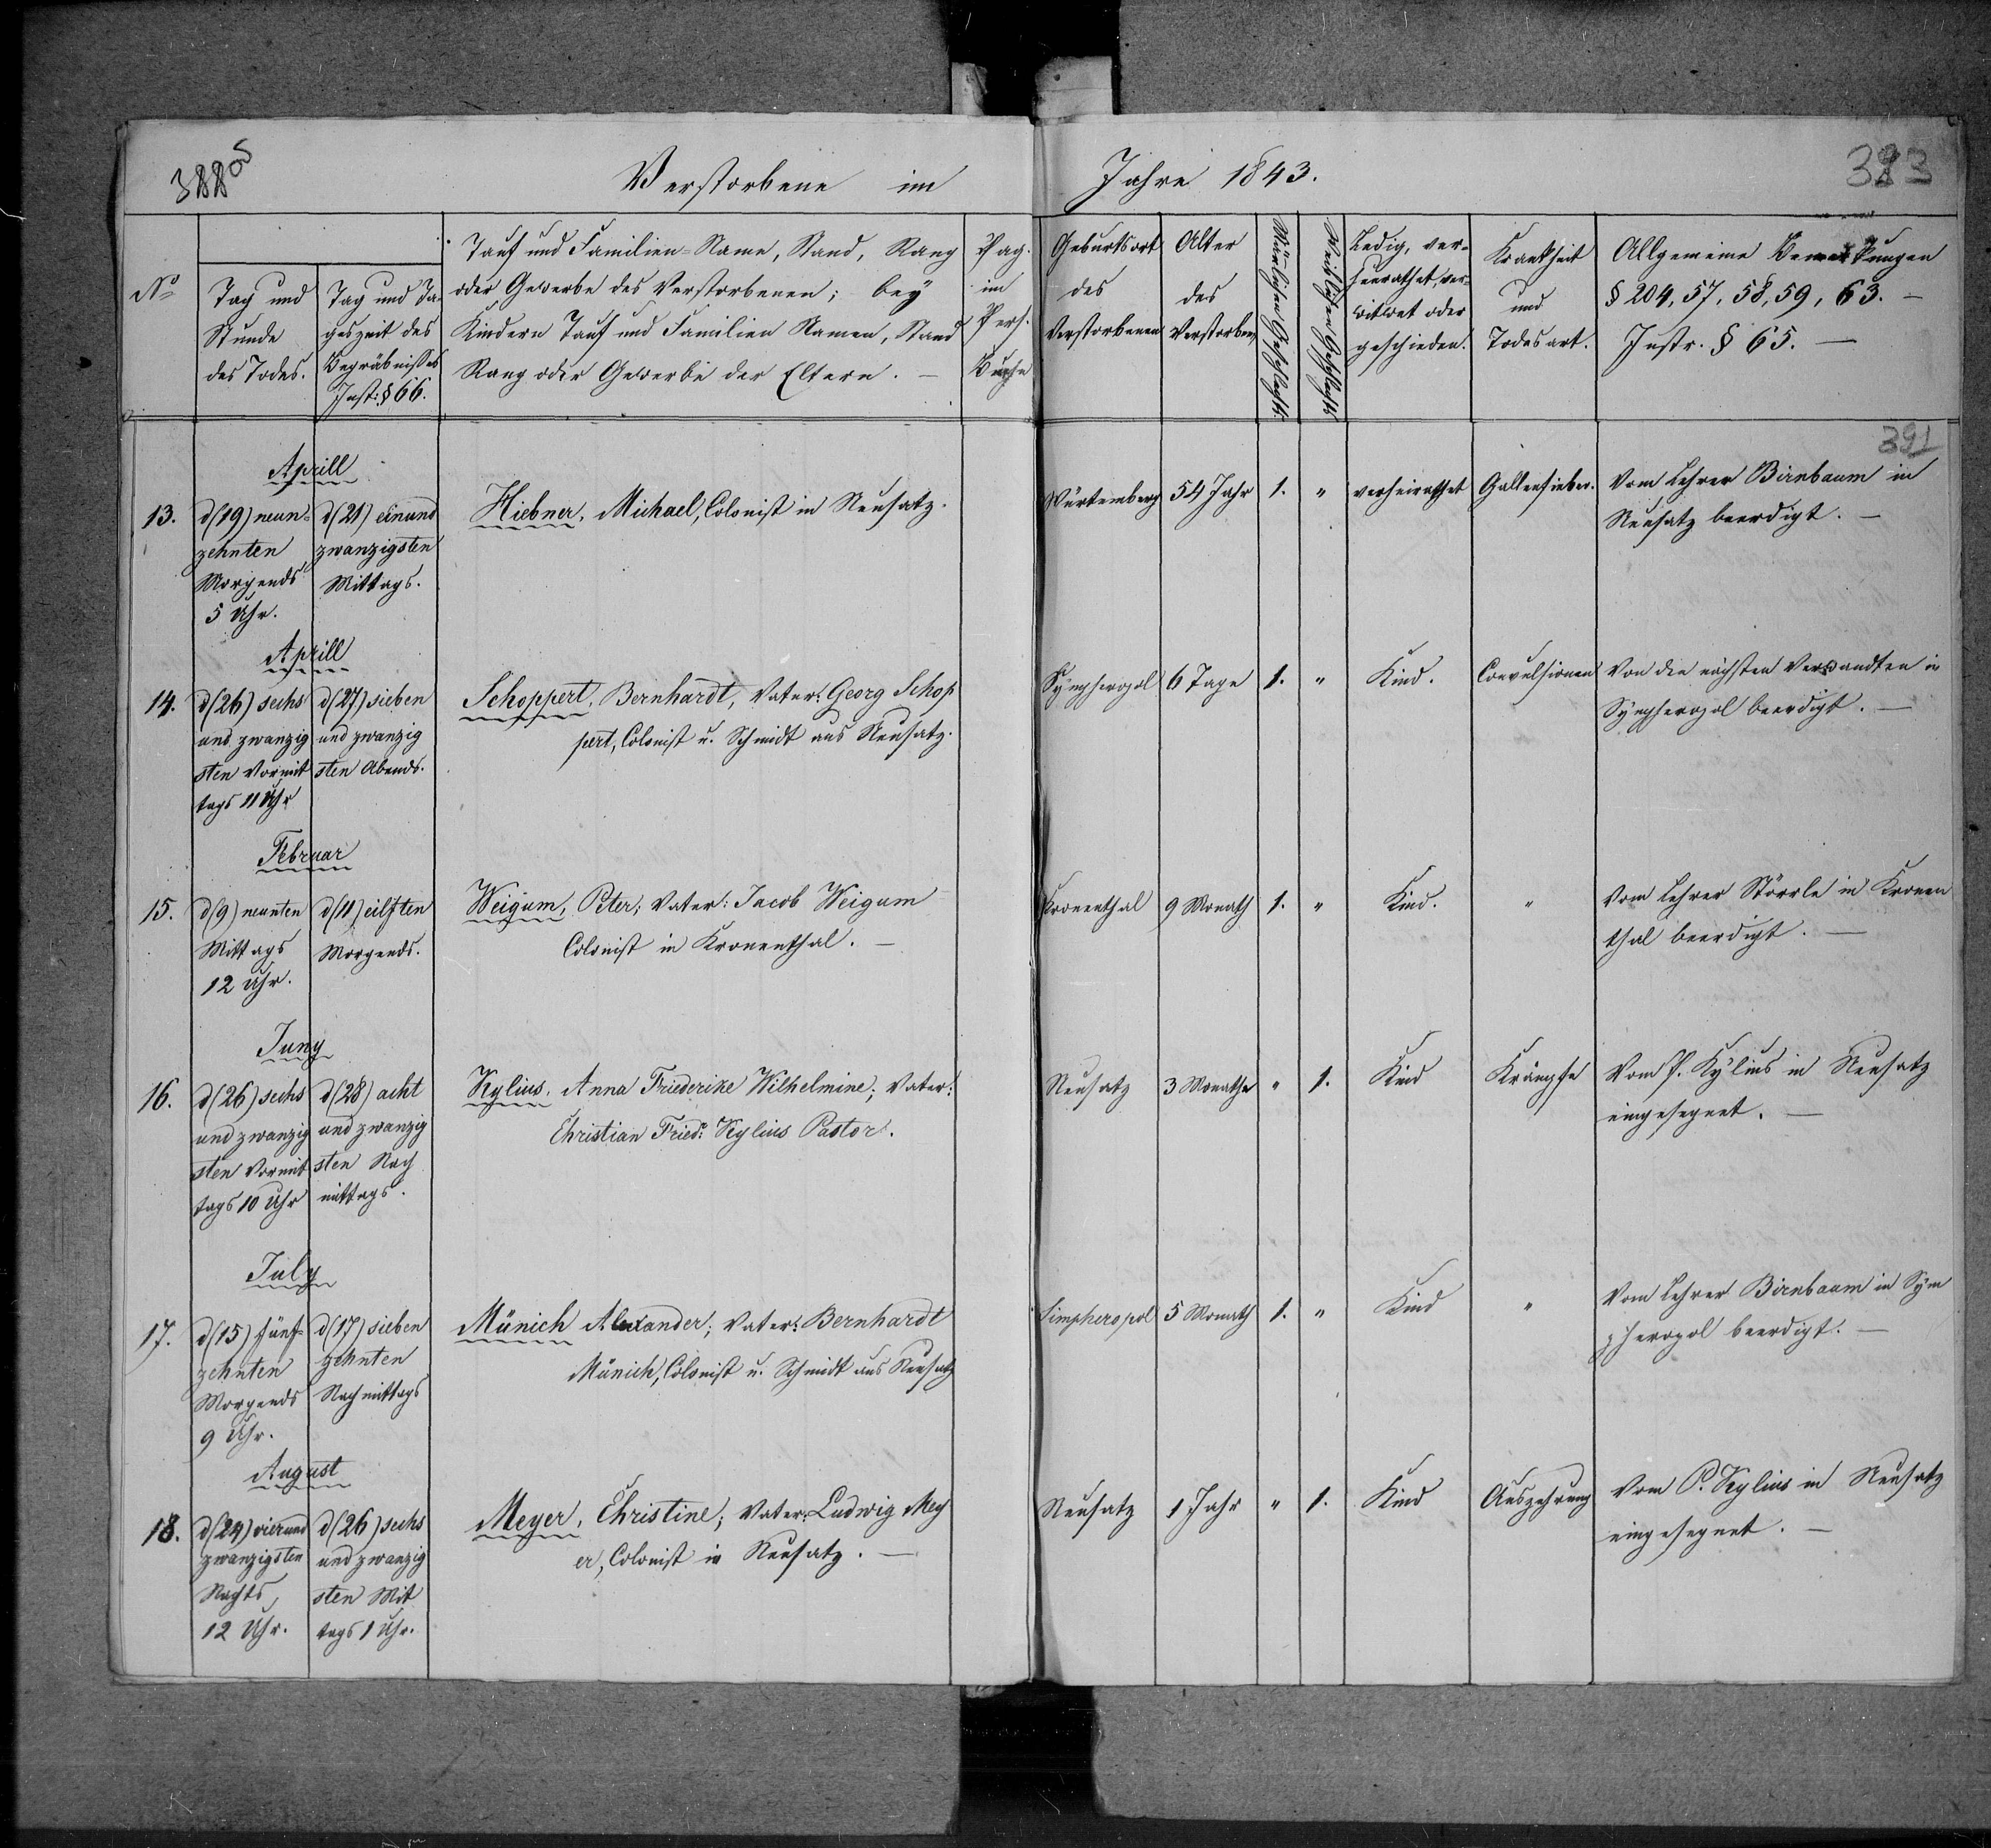 388 os
Verstorbene im Jahre 1843.
383
No
Tag und
Stunde
des Todes.
Tag und Ta-
geszeit des
Begräbnißes
Inst: § 66.
Tauf und Familien-Name, Stand, Rang
oder Gewerbe des Verstorbenen; bey
Kindern Tauf und Familien Namen, Stand
Rang oder Gewerbe der Eltern. —
Pag.
im
Pers.
Buche
Geburtsort
des
Verstorbenen
Alter
des
Verstorben
Mänlichen Geschlechts.
Weiblichen Geschlechts
Ledig, ver-
heirathet, ver-
witwet oder
geschieden.
Krankheit
und
Todesart.
Allgemeine Bemerkungen
§ 204, 57, 58, 59, 63. —
Instr. § 65. —
391
Aprill
13.
d (19) neun-
zehnten
Morgends
5 Uhr.
d (21) einund
zwanzigsten
Mittags.
Hiebner, Michael, Colonist in Neusatz.
Würtemberg
54 Jahr
1.
"
verheirathet
Gallenfieber.
Vom Lehrer Birnbaum in
Neusatz beerdigt. —
Aprill
14.
d (26) sechs
und zwanzig
sten Vormit
tags 11 Uhr
d (27) sieben
und zwanzig
sten Abends.
Schoppert, Bernhardt, Vater: Georg Schop
pert, Colonist u. Schmidt aus Neusatz.
Sÿmpheropol
6 Tage
1.
"
Kind.
Convulsionen
Von den nächsten Verwandten in
Sÿmpheropol beerdigt. —
Februar
15.
d (9) neunten
Mittags
12 Uhr.
d (11) eilften
Morgends.
Weigum, Peter; Vater: Jacob Weigum
Colonist in Kronenthal. —
Kronenthal
9 Monath
1.
"
Kind.
"
Vom Lehrer Störrle in Kronen
thal beerdigt. —
Juny
16.
d (26) sechs
und zwanzig
sten Vormit
tags 10 Uhr
d (28) acht
und zwanzig
sten Nach
mittags.
Kylius, Anna Friederike Wilhelmine; Vater:
Christian Fried: Kylius Pastor.
Neusatz
3 Monathe
"
1.
Kind
Krämpfe
Vom P. Kÿlius in Neusatz
eingesegnet. —
July
17.
d (15) fünf-
zehnten
Morgends
9 Uhr.
d (17) sieben
zehnten
Nachmittags
Münich Alexander; Vater: Bernhardt
Münich, Colonist u. Schmidt aus Neusatz
Simpheropol
5 Monath
1.
"
Kind
"
Vom Lehrer Birnbaum in Sÿm
pheropol beerdigt. —
August
18.
d (24) vierund
zwanzigsten
Nachts,
12 Uhr.
d (26) sechs
und zwanzig
sten Mit
tags 1 Uhr.
Meyer, Christine; Vater: Ludwig Mey
er, Colonist in Neusatz. —
Neusatz
1 Jahr
"
1.
Kind
Auszehrung
Vom P. Kylius in Neusatz
eingesegnet. —